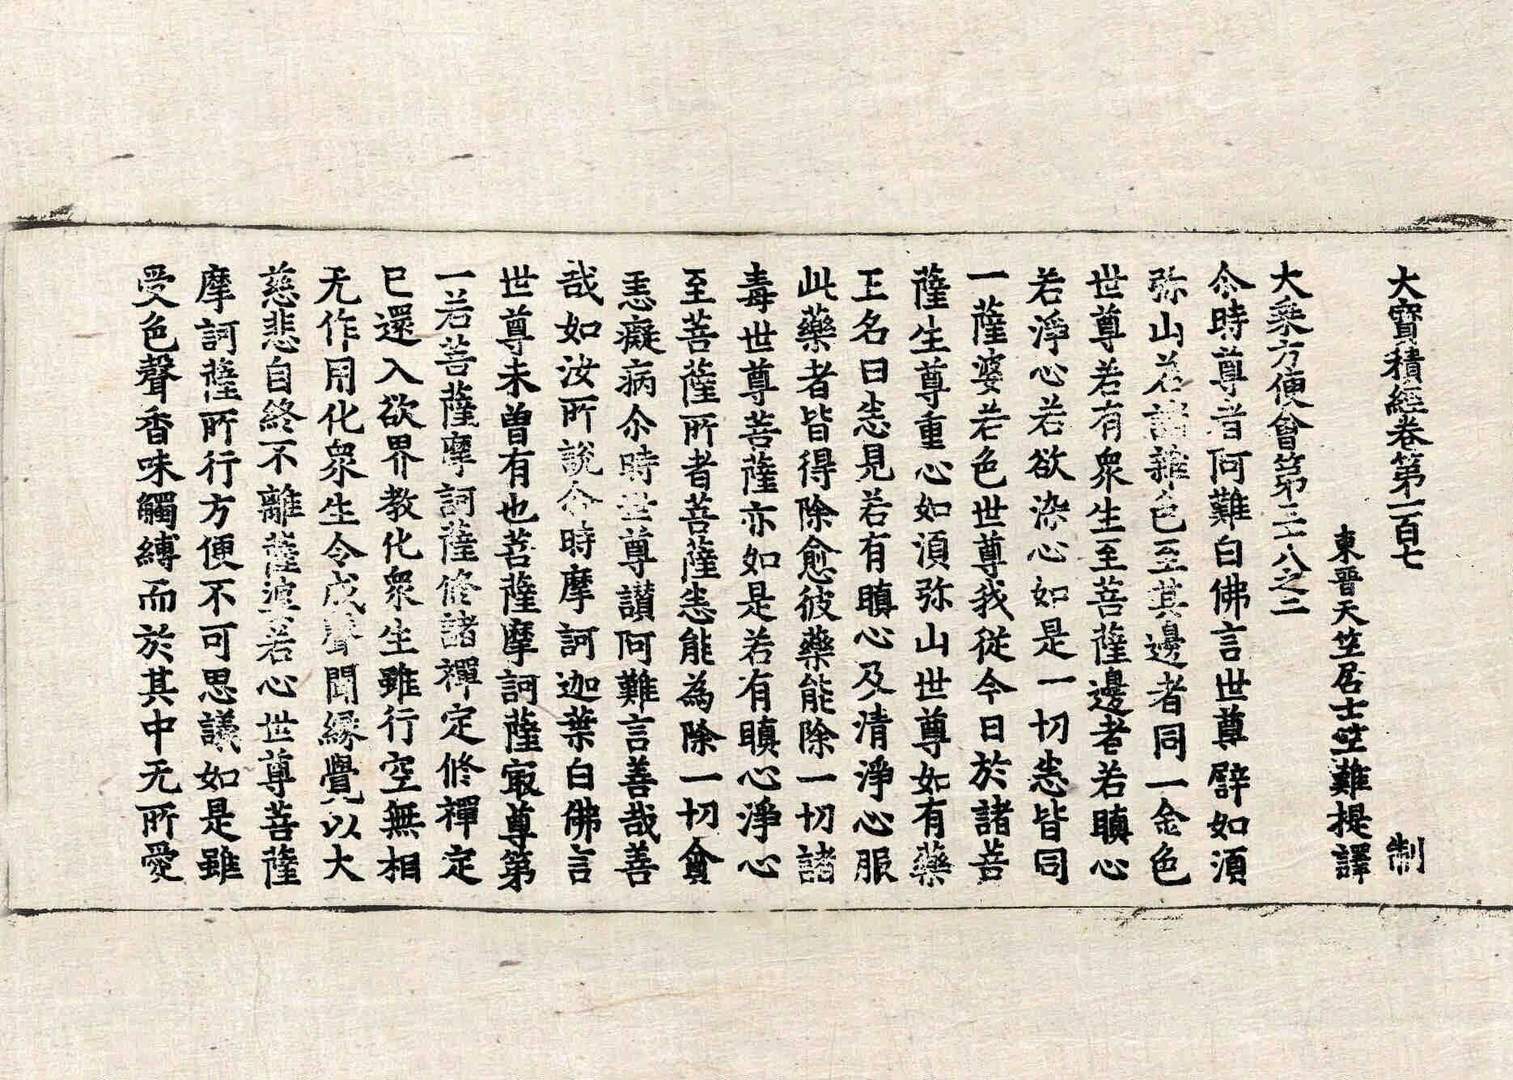 大寶積經卷第一百七 制
東晉天竺居士竺難提譯
大乘方便會第三十八之二
尒時尊者阿難白佛言世尊譬如湏
弥山若諸雜色至其邊者同一金色
世尊若有衆生至菩薩邊者若瞋心
若淨心若欲染心如是一切恙皆同
一薩婆若色世尊我従今日於諸菩
薩生尊重心如湏弥山世尊如有藥
王名曰恙見若有瞋心及清淨心服
此藥者皆得除愈彼藥能除一切諸
毒世尊菩薩亦如是若有瞋心淨心
至菩薩所者菩薩恙能為除一切貪
恚癡病尒時世尊讃阿難言善哉善
哉如汝所說尒時摩訶迦葉白佛言
世尊未曽有也菩薩摩訶薩㝡尊第
一若菩薩摩訶薩修諸禪定修禪定
已還入欲界教化衆生雖行空無相
无作用化衆生令成聲聞縁覺以大
慈悲自終不離薩婆若心世尊菩薩
摩訶薩所行方便不可思議如是雖
受色聲香味觸縛而於其中无所愛